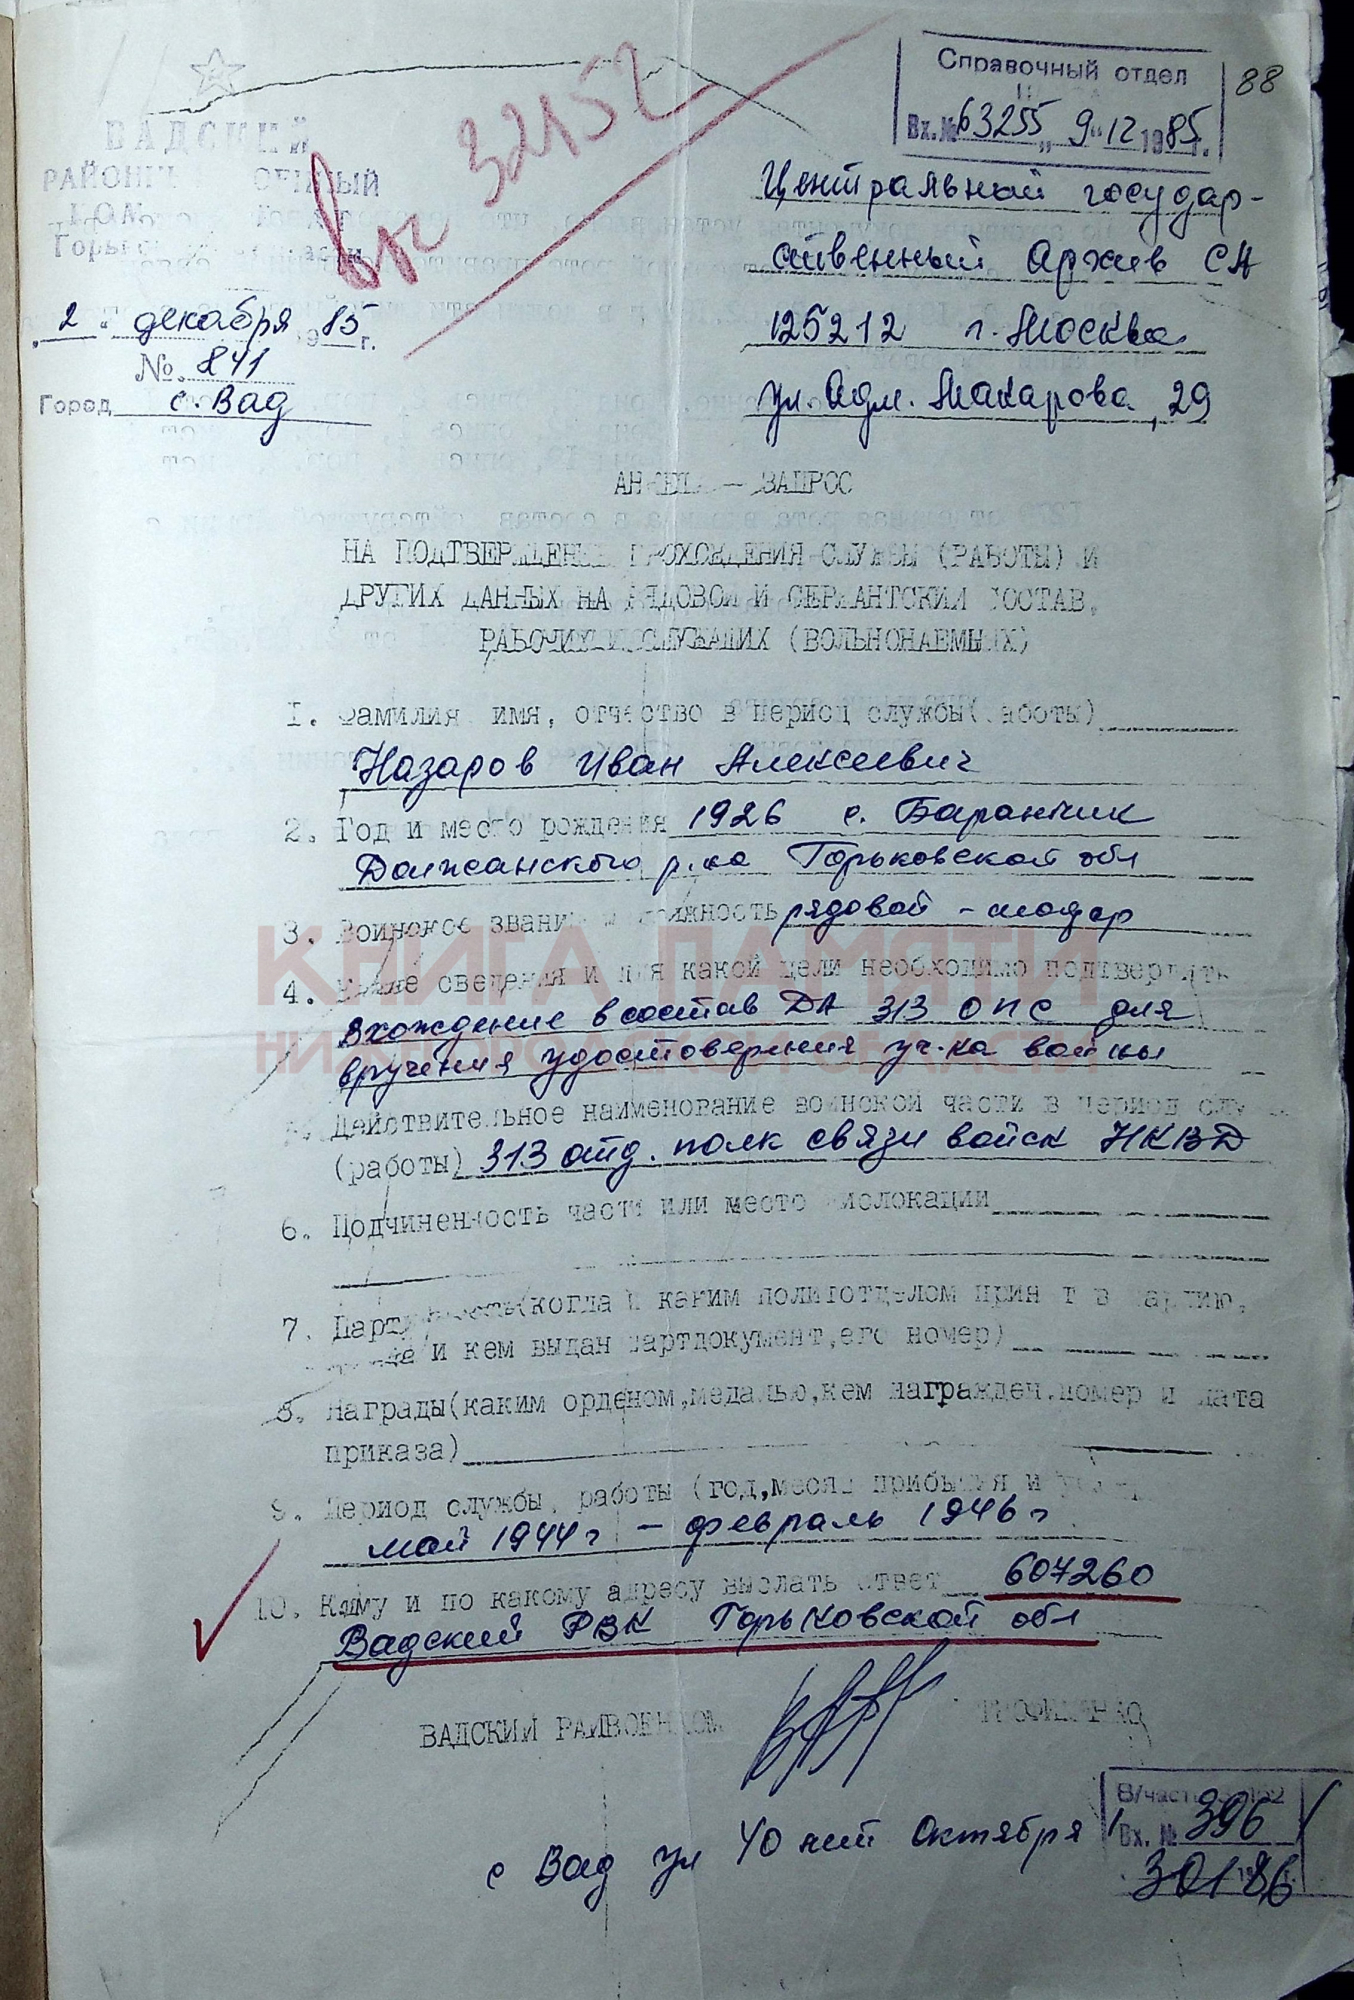 Справочный отдел
88
Вх.№ 63255 „9“ 12 1985 г.
вх 32152
ВАДСКИЙ
Центральный государ-
ственный Архив СА
125212 г. Москва
ул. Адм. Макарова, 29
2. декабря 1985 г.
№ 841
Город с. Вад
АНКЕТА – ЗАПРОС
НА ПОДТВЕРЖДЕНИЕ ПРОХОЖДЕНИЯ СЛУЖБЫ (РАБОТЫ) И
ДРУГИХ ДАННЫХ НА РЯДОВОЙ И СЕРЖАНТСКИЙ СОСТАВ,
РАБОЧИХ И СЛУЖАЩИХ (ВОЛЬНОНАЕМНЫХ)
1. Фамилия, имя, отчество в период службы(работы)
Назаров Иван Алексеевич
2. Год и место рождения 1926 с. Баранчик
Далжанского р.на Горьковской обл
3. Воинское звание и должность рядовой – шофер
КНИГА ПАМЯТИ
4. Какие сведения и для какой цели необходимо подтвердить
Вхождение в состав ДА 313 ОПС для
НИЖЕГОРОДСКОЙ ОБЛАСТИ
вручения удостоверения уч-ка войны
5. Действительное наименование воинской части в период служ
(работы) 313 отд. полк связи войск НКВД
6. Подчиненность части или место дислокации
7. Партийность(когда и каким политотделом принят в партию,
когда и кем выдан партдокумент,его номер)
8. Награды(каким орденом,медалью,кем награжден,номер и дата
приказа)
9. Период службы, работы (год,месяц прибытия и
май 1944 г – февраль 1946 г
10. Кому и по какому адресу выслать ответ 607260
Вадский РВК Горьковской обл
ВАДСКИЙ РАЙВОЕНКОМ
с Вад ул 40 лет Октября 1
В/часть
Вх. № 396
30 1 86